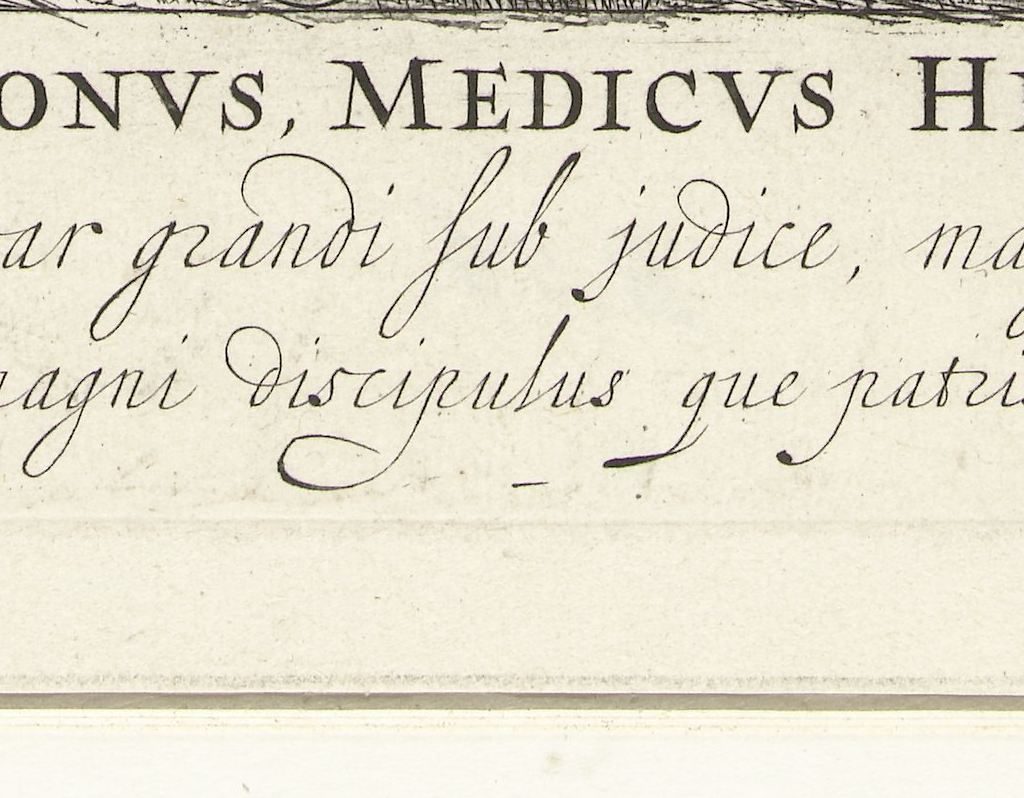 ONVS, MEDICVS HE
ar grandi sub judice, ma
magni discipulus que patris